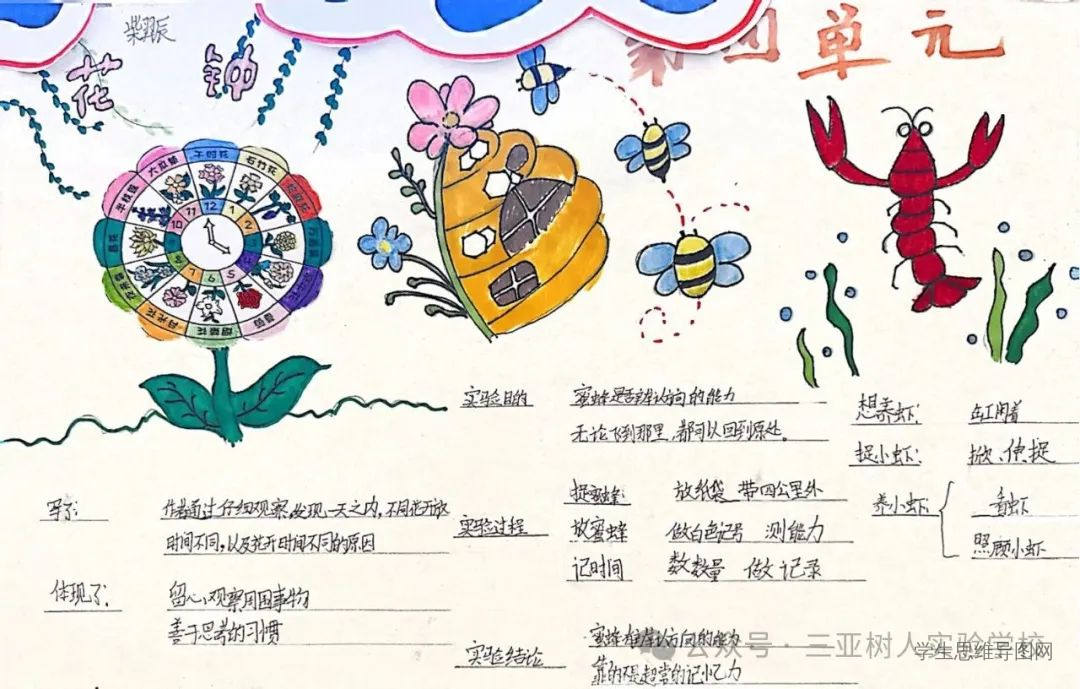 第四单元
花 钟
大丽花
午时花
石竹花
万寿菊
烟草花
月光花
昙花
11 12 1
10 2
实验目的
蜜蜂是否有辨认方向的能力
无论飞到那里,都可以回到原处。
想养虾: 缸闲着
捉小虾: 掀、伸、捉
养小虾 看虾
照顾小虾
写了: 作者通过仔细观察,发现一天之内,不同花开放
时间不同,以及花开时间不同的原因
体现了: 留心观察周围事物
善于思考的习惯
实验过程
捉蜜蜂: 放纸袋 带四公里外
放蜜蜂 做白色记号 测能力
记时间 数数量 做记录
实验结论
蜜蜂有辨认方向的能力
靠的不是超常的记忆力
公众号·三亚树人实验学校
学生思维导图网